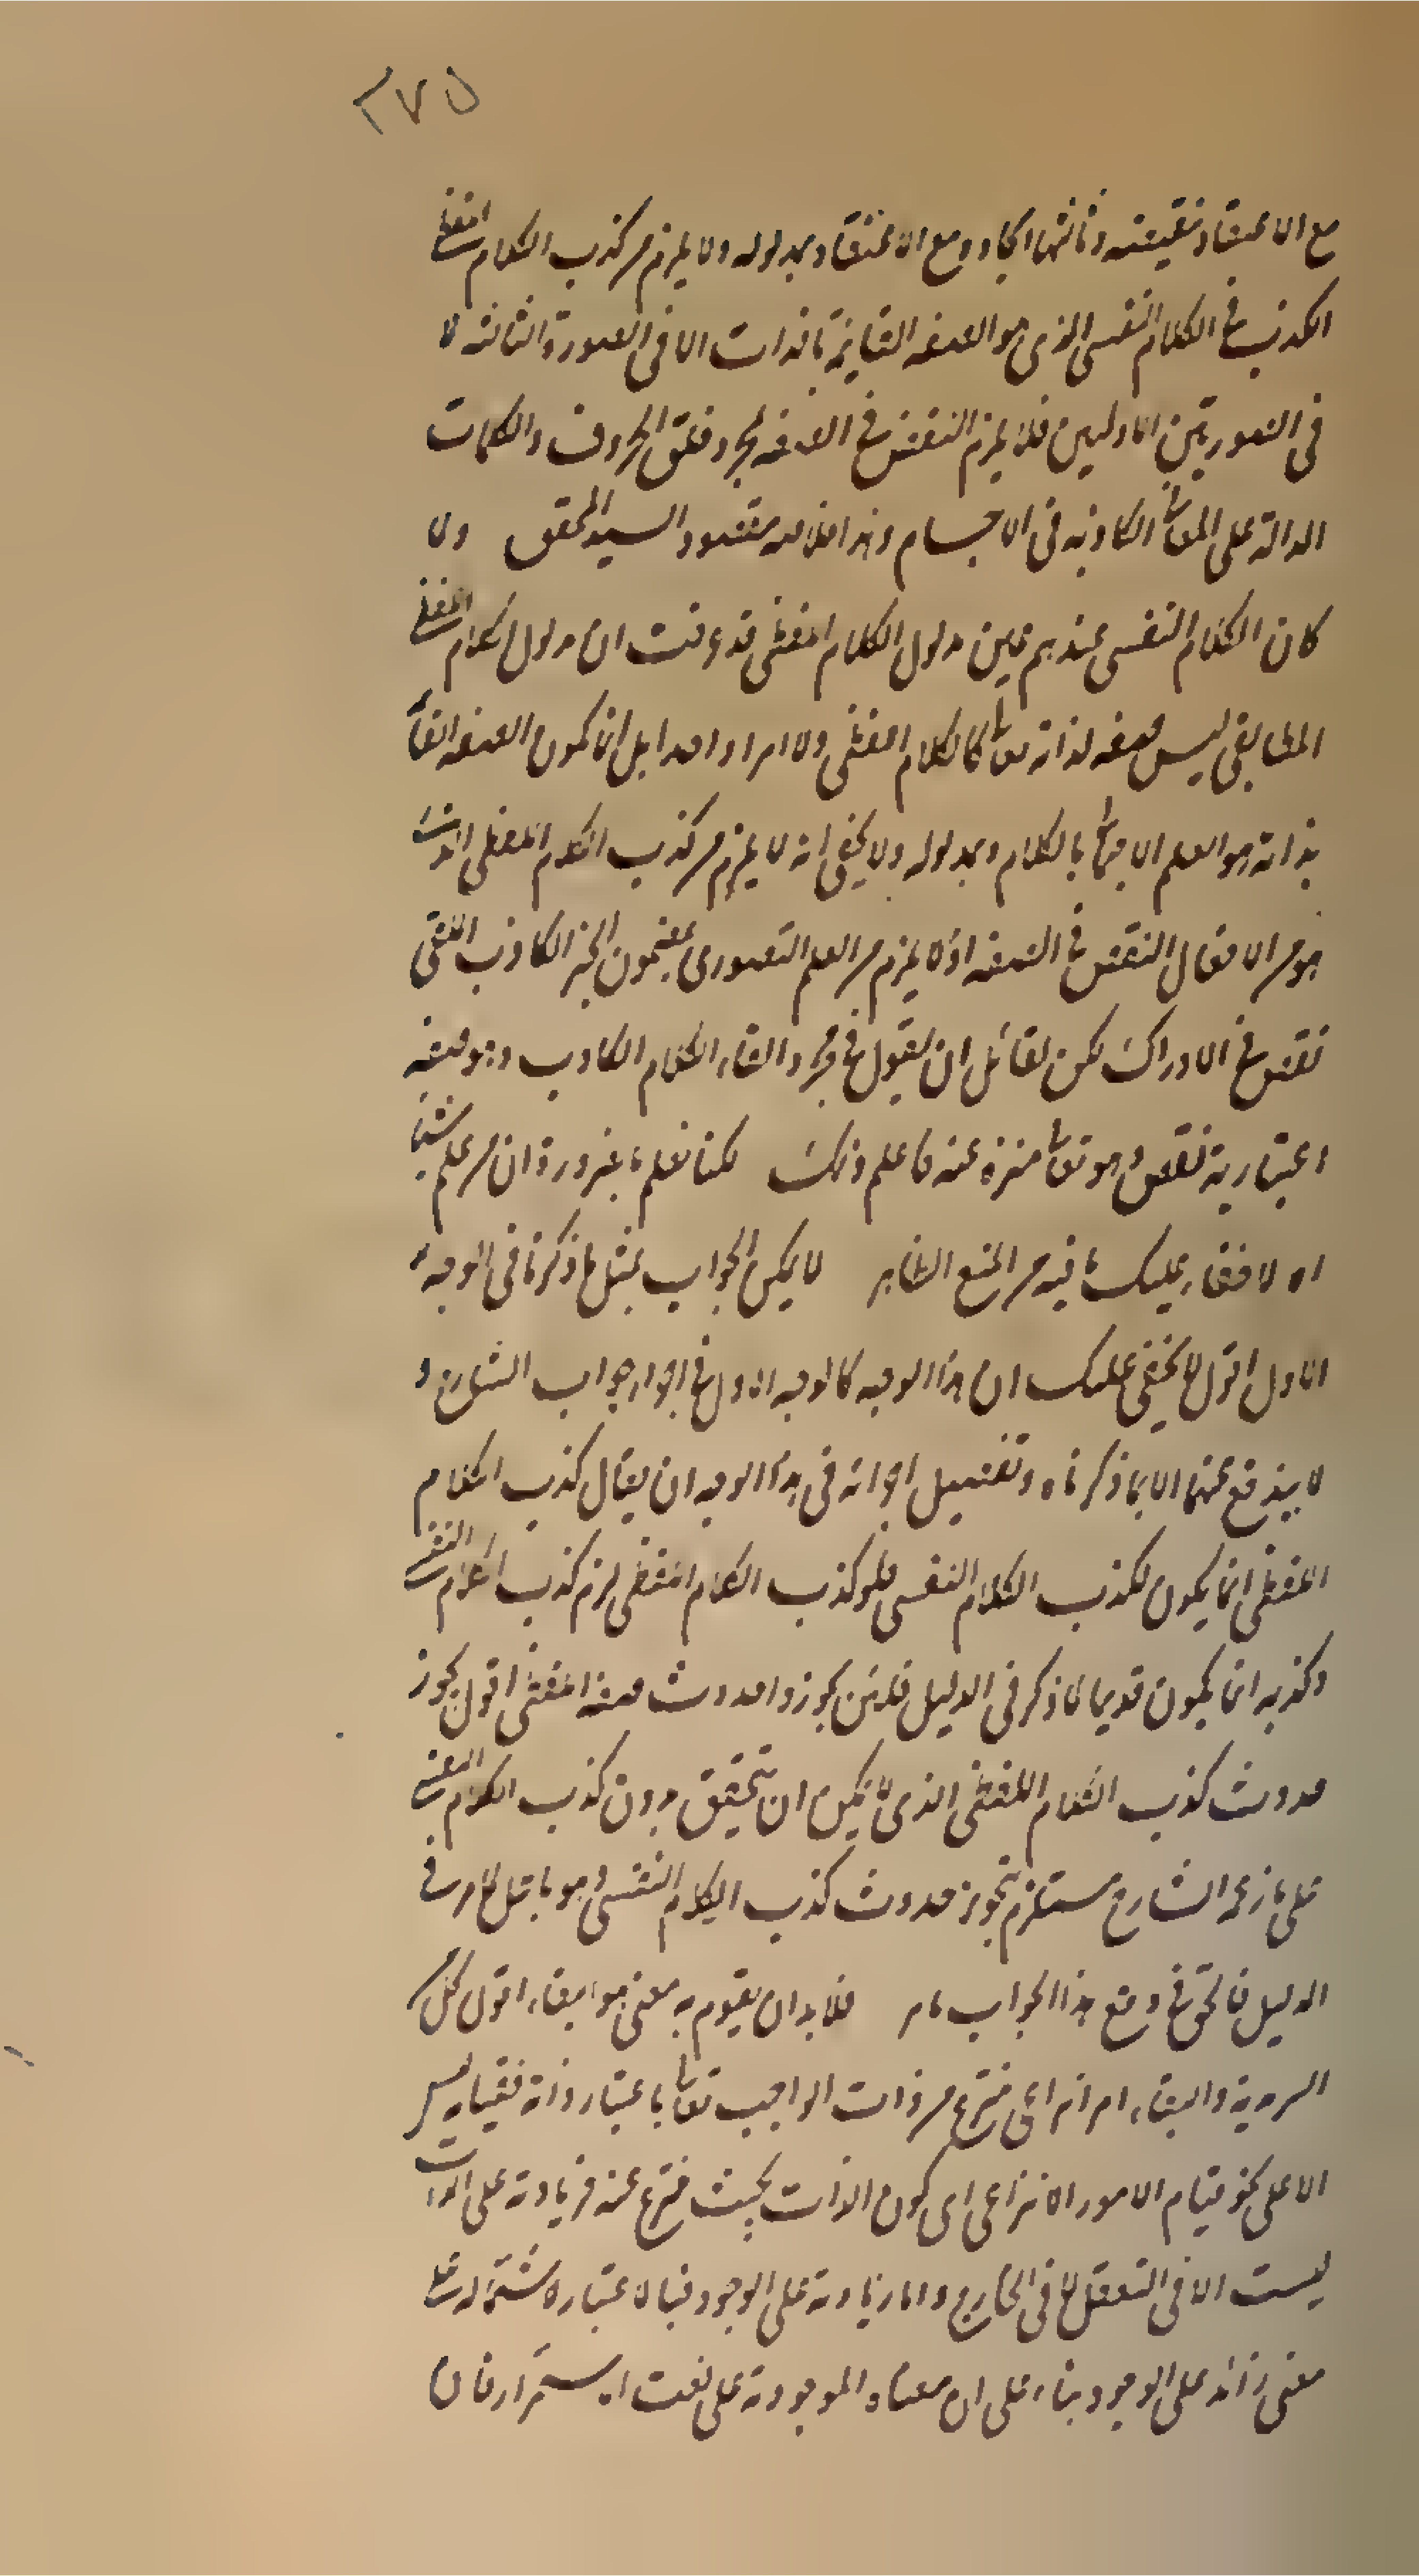 ٣٧٥
مع الاعتقاد بنقيضه وثالثها ايجاده مع الاعتقاد بمدلوله ولا يلزم من كذب الكلام اللفظى
الكذب فى الكلام النفسى الذى هو الصفه القايمة بالذات الا فى الصورة الثالثه لا
فى الصورتين الاوليين فلا يلزم النقص فى الصفه لمجرد خلق الحروف والكلمات
الدالة على المعانى الكاذبه فى الاجسام وهذا خلاصه مقصود السيد المحقق ولا
كان الكلام النفسى عندهم عين مدلول الكلام اللفظى قد عرفت ان مدلول الكلام اللفظى
المطابقى ليس صفه لذاته تعالى كالكلام اللفظى ولا امرا واحدا بل انما يكون الصفه القائمة
بذاته هو العلم الاجمالى بالكلام وبمدلوله ولا يخفى انه لا يلزم من كذب الكلام اللفظى الذى
هو من الافعال النقص فى الصفه اذ لا يلزم من العلم التصورى بمضمون الخبر الكاذب اللفظى
نقص فى الادراك لكن لقائل ان يقول فى مجرد القاء الكلام الكاذب وهو صفه
اعتبارية نقص وهو تعالى منزه عنه فاعلم ذلك لكنا نعلم بالضرورة ان من علم شيئا
اه لا خفاء عليك ما فيه من المنع الظاهر لا يمكن الجواب بمثل ما ذكرنا فى الوجه
الاول اقول لا يخفى عليك ان هذا الوجه كالوجه الاول فى اجراء جواب الشارح و
لا يندفع عنهما الا بما ذكرناه وتفصيل اجرائه فى هذا الوجه ان يقال كذب الكلام
اللفظى انما يكون لكذب الكلام النفسى فلو كذب الكلام اللفظى لزم كذب الكلام النفسى
وكذبه انما يكون قديما لما ذكر فى الدليل فلئن يجوزوا حدوث صفه اللفظى اقول يجوز
حدوث كذب الكلام اللفظى الذى لا يمكن ان يتحقق بدون كذب الكلام النفسى
على ما زعمه الشارح مستلزم تجويز حدوث كذب الكلام النفسى وهو باطل لما مر فى
الدليل فالحق فى دفع هذا الجواب ما مر فلا بد ان يقوم به معنى هو البقاء اقول كل من
السرمدية والبقاء امر انتزاعى منتزع من ذات الواجب تعالى باعتبار ذاته فقيامه ليس
الا على نحو قيام الامور الانتزاعى اى كون الذات بحيث ينتزع عنه فزيادته على الذات
ليست الا فى التعقل لا فى الخارج واما زيادته على الوجود فباعتبار اشتماله على
معنى زائد على الوجود بناء على ان معناه الموجودية على نعت استمرار فان